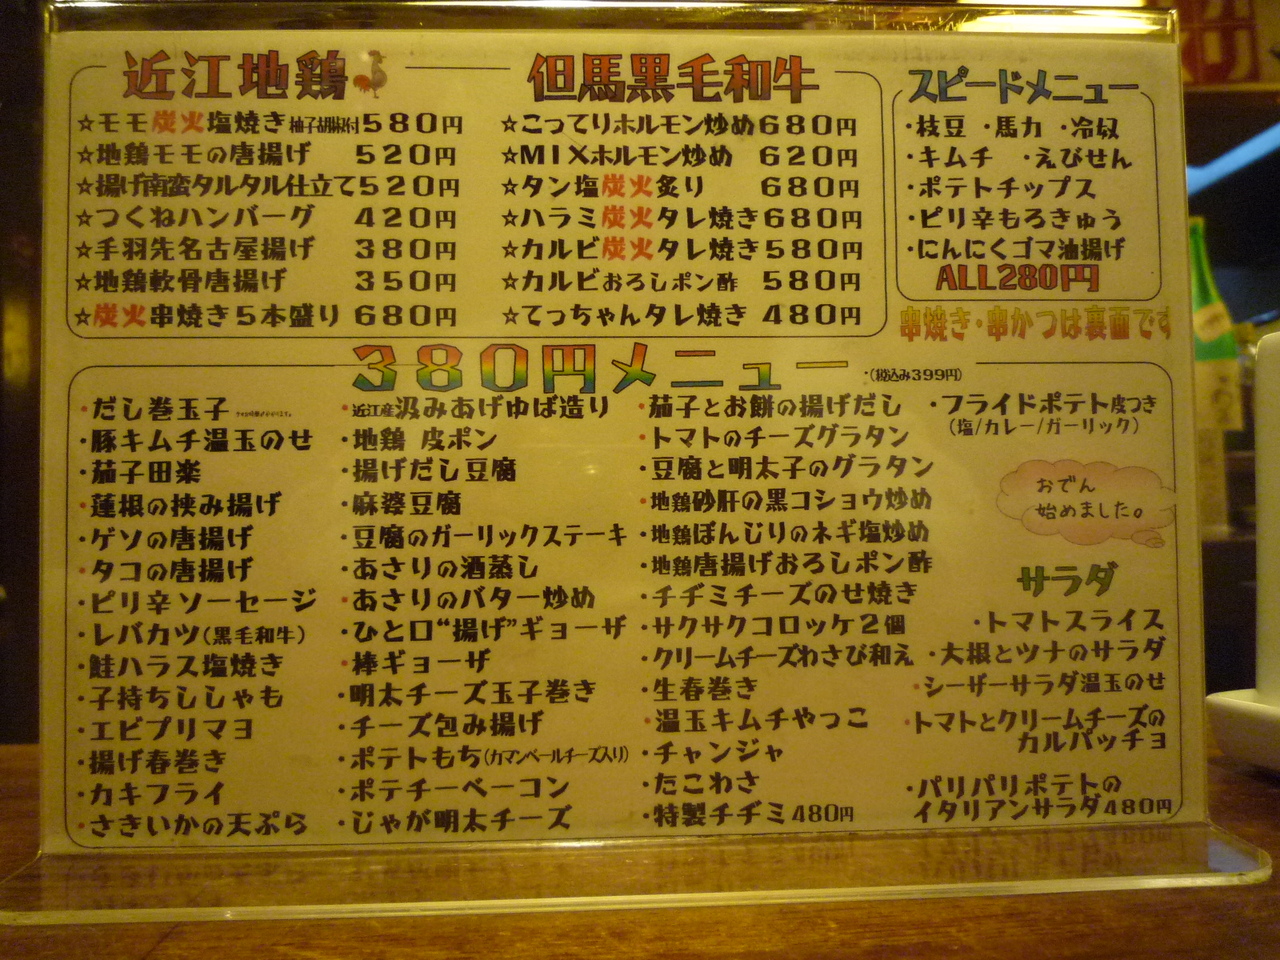 近江地鶏
☆モモ炭火塩焼き柚子胡椒付580円
☆地鶏モモの唐揚げ 520円
☆揚げ南蛮タルタル仕立て520円
☆つくねハンバーグ 420円
☆手羽先名古屋揚げ 380円
☆地鶏軟骨唐揚げ 350円
☆炭火串焼き5本盛り 680円
但馬黒毛和牛
☆こってりホルモン炒め680円
☆MIXホルモン炒め 620円
☆タン塩炭火炙り 680円
☆ハラミ炭火タレ焼き680円
☆カルビ炭火タレ焼き580円
☆カルビおろしポン酢 580円
☆てっちゃんタレ焼き 480円
スピードメニュー
・枝豆 ・馬力 ・冷奴
・キムチ ・えびせん
・ポテトチップス
・ピリ辛もろきゅう
・にんにくゴマ油揚げ
ALL280円
串焼き・串かつは裏面です
380円メニュー
・(税込み399円)
・だし巻玉子
・豚キムチ温玉のせ
・茄子田楽
・蓮根の挟み揚げ
・ゲソの唐揚げ
・タコの唐揚げ
・ピリ辛ソーセージ
・レバカツ(黒毛和牛)
・鮭ハラス塩焼き
・子持ちししゃも
・エビプリマヨ
・揚げ春巻き
・カキフライ
・さきいかの天ぷら
・近江産汲みあげゆば造り
・地鶏 皮ポン
・揚げだし豆腐
・麻婆豆腐
・豆腐のガーリックステーキ
・あさりの酒蒸し
・あさりのバター炒め
・ひと口“揚げ”ギョーザ
・棒ギョーザ
・明太チーズ玉子巻き
・チーズ包み揚げ
・ポテトもち(カマンベールチーズ入り)
・ポテチーベーコン
・じゃが明太チーズ
・茄子とお餅の揚げだし
・トマトのチーズグラタン
・豆腐と明太子のグラタン
・地鶏砂肝の黒コショウ炒め
・地鶏ぼんじりのネギ塩炒め
・地鶏唐揚げおろしポン酢
・チヂミチーズのせ焼き
・サクサクコロッケ2個
・クリームチーズわさび和え
・生春巻き
・温玉キムチやっこ
・チャンジャ
・たこわさ
・特製チヂミ480円
・フライドポテト皮つき
(塩/カレー/ガーリック)
おでん
始めました。
サラダ
・トマトスライス
・大根とツナのサラダ
・シーザーサラダ温玉のせ
・トマトとクリームチーズの
カルパッチョ
・パリパリポテトの
イタリアンサラダ480円